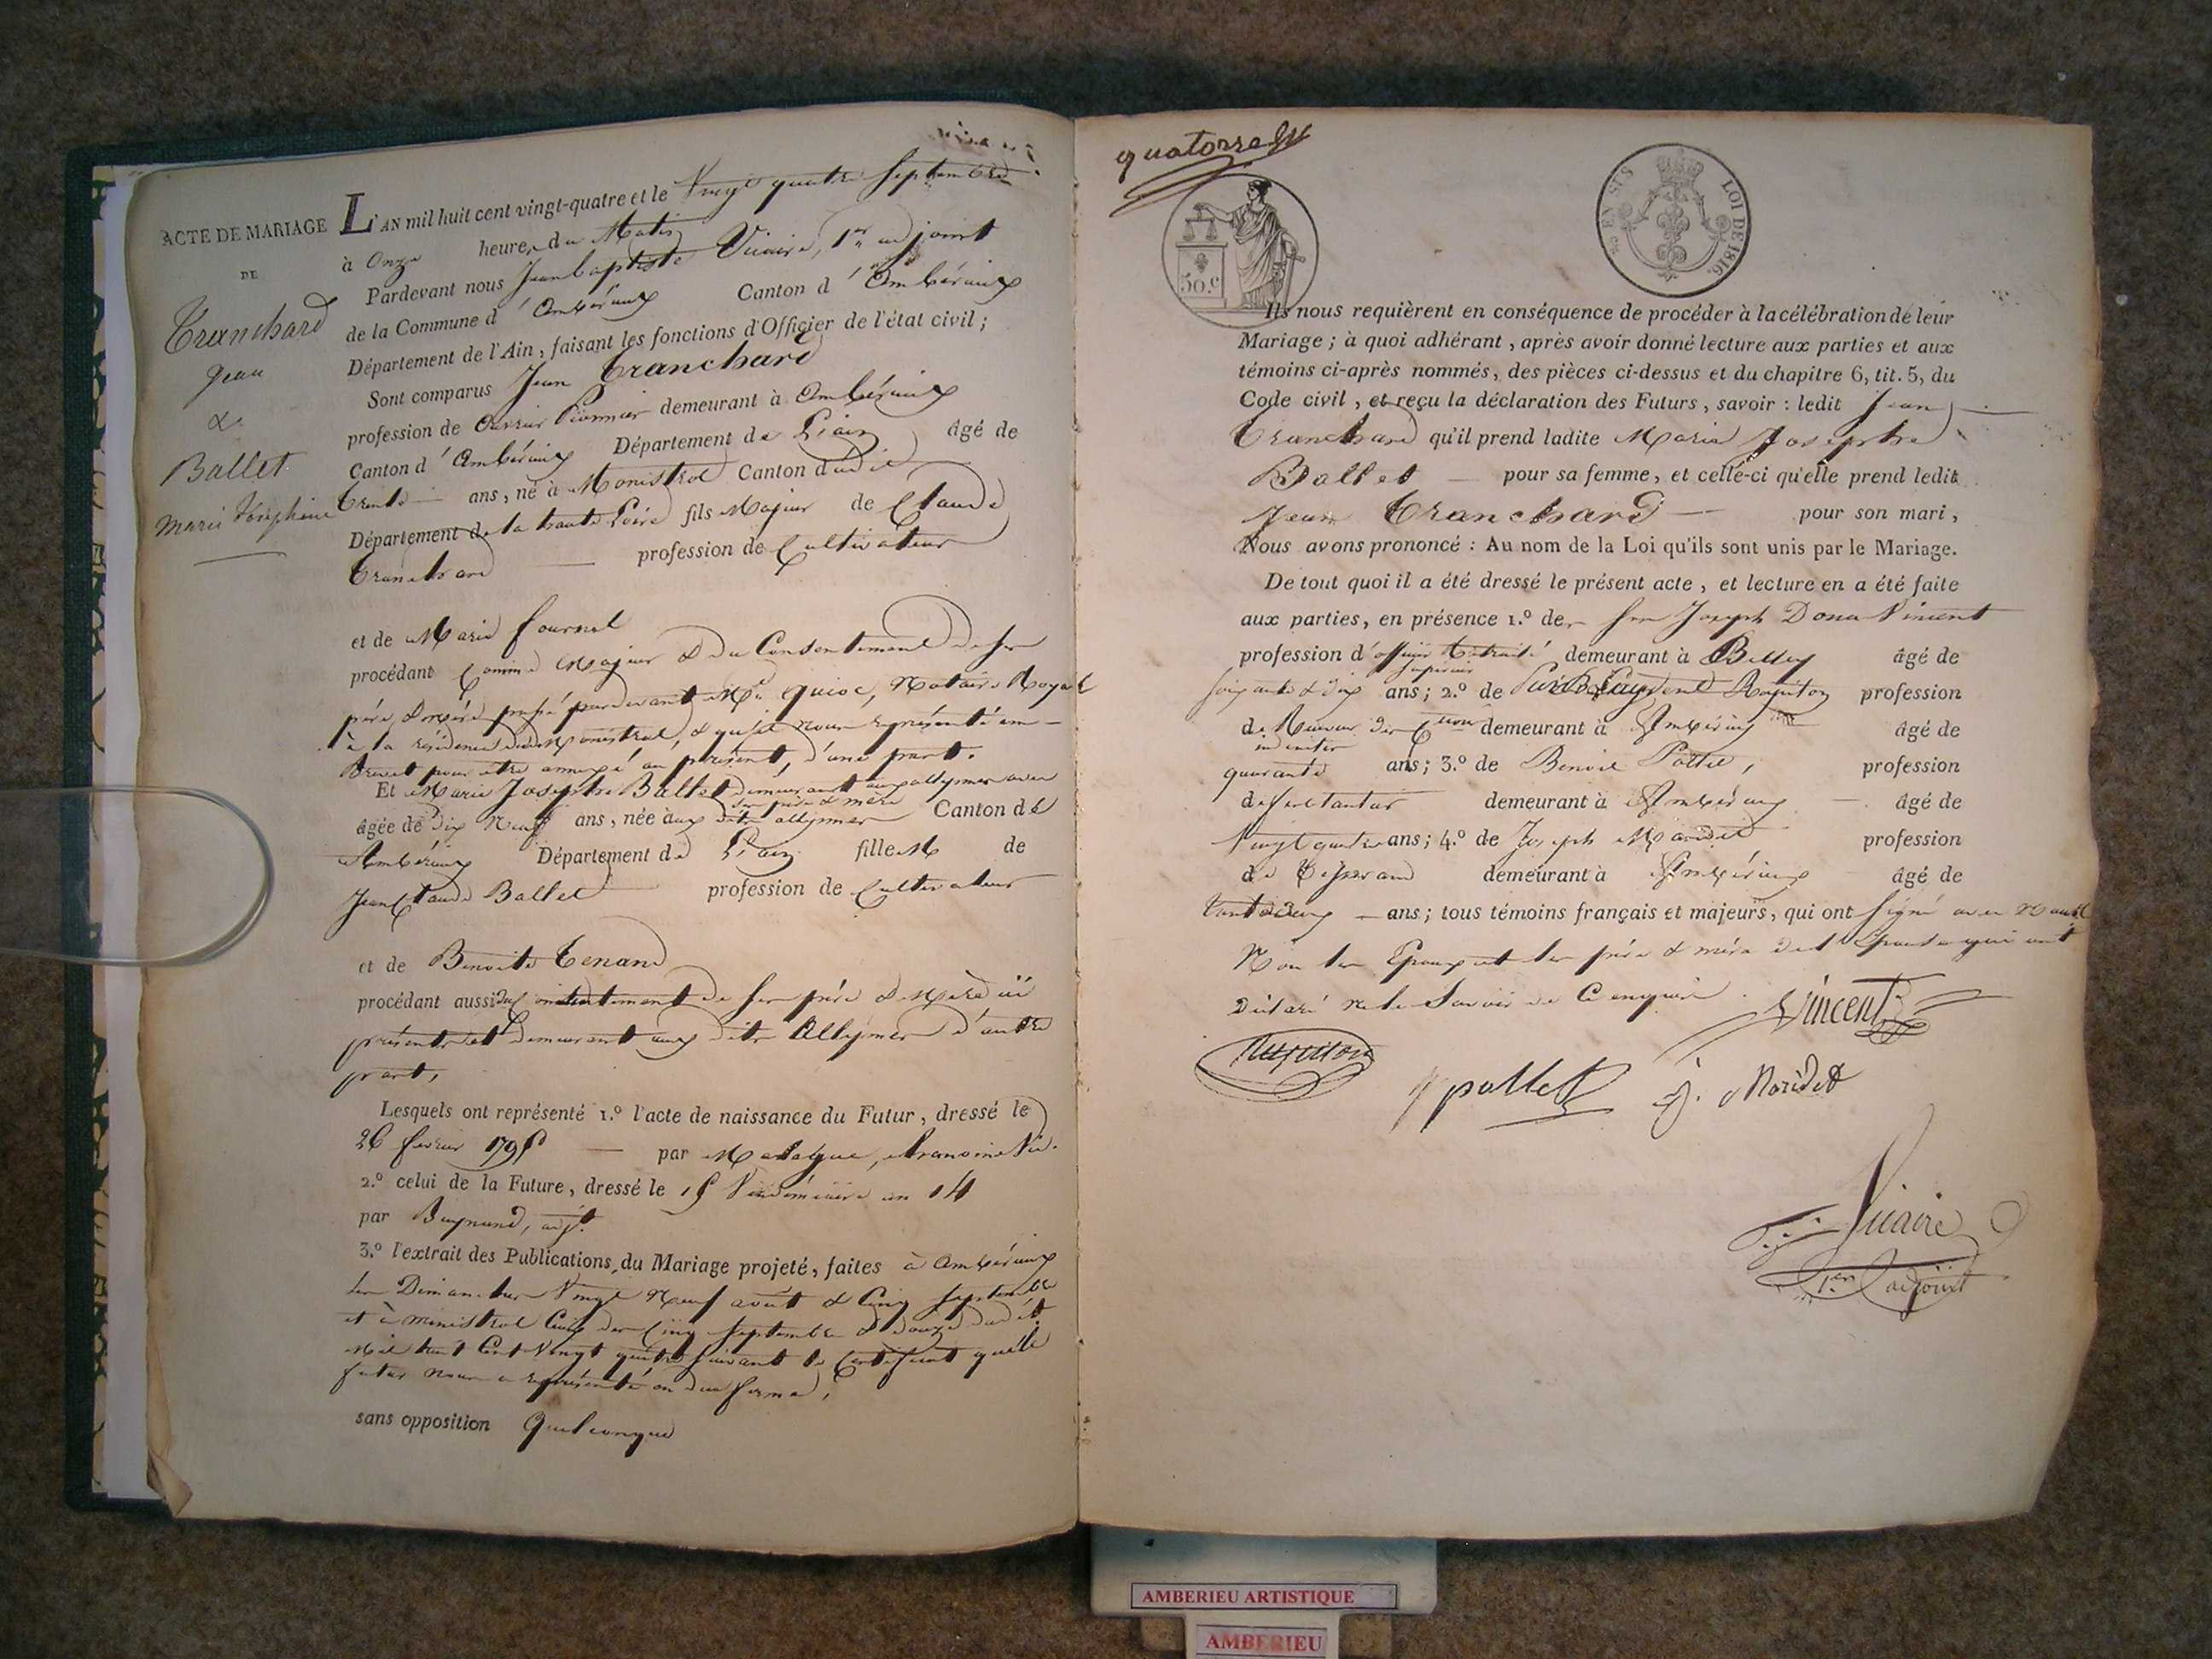 ACTE DE MARIAGE
DE
Tranchard
Jean
&
Ballet
Marie Josephine
L'AN mil huit cent vingt-quatre et le Vingt quatre Septembre
à Onze heures du Matin
Pardevant nous Jean baptiste Vicaire, 1er adjoint
de la Commune d'Ambérieux Canton d'Ambérieux
Département de l'Ain, faisant les fonctions d'Officier de l'état civil;
Sont comparus Jean Tranchard
profession de demeurant à Ambérieux
Canton d'Ambérieux Département de L'ain âgé de
trente ans, né à Monistrol Canton dudit
Département de la haute Loire fils Majeur de Claude
Tranchard profession de Cultivateur
et de Marie fournel
procédant Comme Majeur & du Consentement de ses
père & mère passé pardevant Me Notaire Royal
à la résidence de Monistrol, & qu'il nous a représenté en
Brevet pour être annexé au présent, d'une part.
Et Marie Josephte Ballet demeurant aux allymes avec
ses père & mère
âgée de Dix Neuf ans, née aux dits allymes Canton de
Ambérieux Département de L'ain fille M de
Jean Claude Ballet profession de Cultivateur
et de Benoite Tenand
procédant aussi du Consentement de ses père & Mère ici
présents et demeurant aux dits Allymes d'autre
part,
Lesquels ont représenté 1.º l'acte de naissance du Futur, dressé le
26 fevrier par
2.º celui de la Future, dressé le Vendémiaire an 14
par adjt.
3.º l'extrait des Publications du Mariage projeté, faites à Ambérieux
les Dimanches Vingt Neuf août & Cinq Septembre
et à Monistrol Ceux des Cinq Septembre & douze dudit
Mil huit Cent Vingt quatre suivant le Certificat que le
futur nous a représenté en due forme,
sans opposition Quelconque
quatorze
50.c
EN SUS
LOI DE 1816.
Ils nous requièrent en conséquence de procéder à la célébration de leur
Mariage; à quoi adhérant, après avoir donné lecture aux parties et aux
témoins ci-après nommés, des pièces ci-dessus et du chapitre 6, tit. 5, du
Code civil, et reçu la déclaration des Futurs, savoir: ledit Jean
Tranchard qu'il prend ladite Marie Josephte
Ballet pour sa femme, et celle-ci qu'elle prend ledit
Jean Tranchard pour son mari,
Nous avons prononcé: Au nom de la Loi qu'ils sont unis par le Mariage.
De tout quoi il a été dressé le présent acte, et lecture en a été faite
aux parties, en présence 1.º de Joseph Dona Vincent
profession d'officier retraité demeurant à Belley âgé de
supérieur
soixante & dix ans; 2.º de profession
de Receveur des demeurant à Ambérieux âgé de
indirectes
quarante ans; 3.º de Benoit Pottet, profession
de demeurant à Ambérieux âgé de
Vingt quatre ans; 4.º de Joseph profession
de Tisserand demeurant à Ambérieux âgé de
trente deux ans; tous témoins français et majeurs, qui ont Signé avec Nous
Non les Epoux et les père & mère de l'Epouse qui ont
Déclaré ne le Savoir de Ce enquis
Vincent
pottet
J. Moridet
Vicaire
1er adjoint
AMBERIEU ARTISTIQUE
AMBERIEU